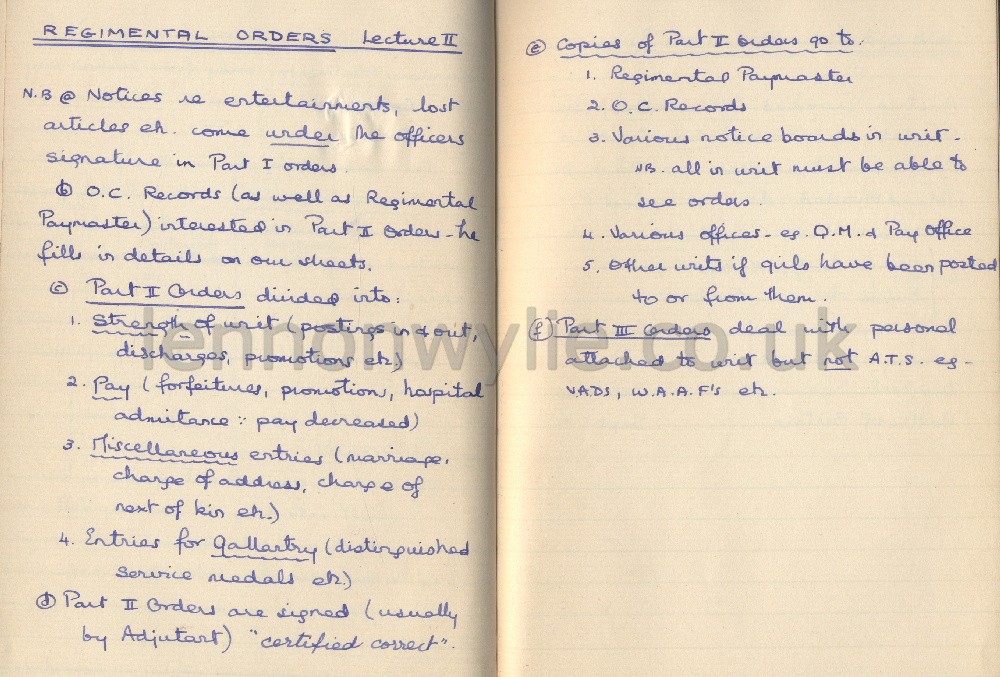 REGIMENTAL ORDERS Lecture II
N.B @ Notices re entertainments, lost
articles etc. come under the officers
signature in Part I orders.
(b) O.C. Records (as well as Regimental
Paymaster) interested in Part II Orders - he
fills in details on our sheets.
(c) Part II Orders divided into:
1. Strength of unit (postings in & out,
discharges, promotions etc)
2. Pay (forfeitures, promotion, hospital
admittance ∵ pay decreased)
3. Miscellaneous entries (marriage,
change of address, change of
next of kin etc.)
4. Entries for gallantry (distinguished
service medals etc.)
(d) Part II Orders are signed (usually
by Adjutant) "certified correct".
(e) Copies of Part II Orders go to:
1. Regimental Paymaster
2. O.C. Records
3. Various notice boards in unit -
NB. all in unit must be able to
see orders.
4. Various offices - eg. Q.M. & Pay Office
5. Other units if girls have been posted
to or from them.
(f) Part III Orders deal with personal
attached to unit but not A.T.S. eg -
V.A.DS, W.A.A.F's etc.
lennonwylie.co.uk